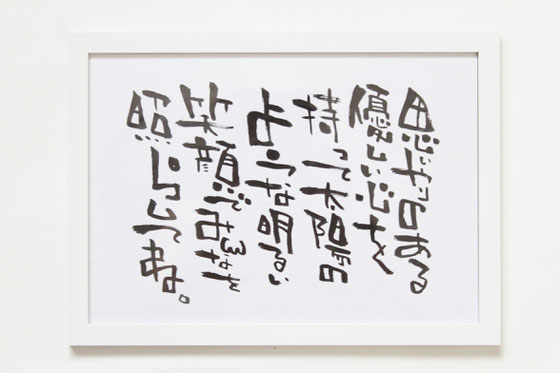 思いやりのある
優しい心を
持って太陽の
ような明るい
笑顔でみなを
照らしてあね。